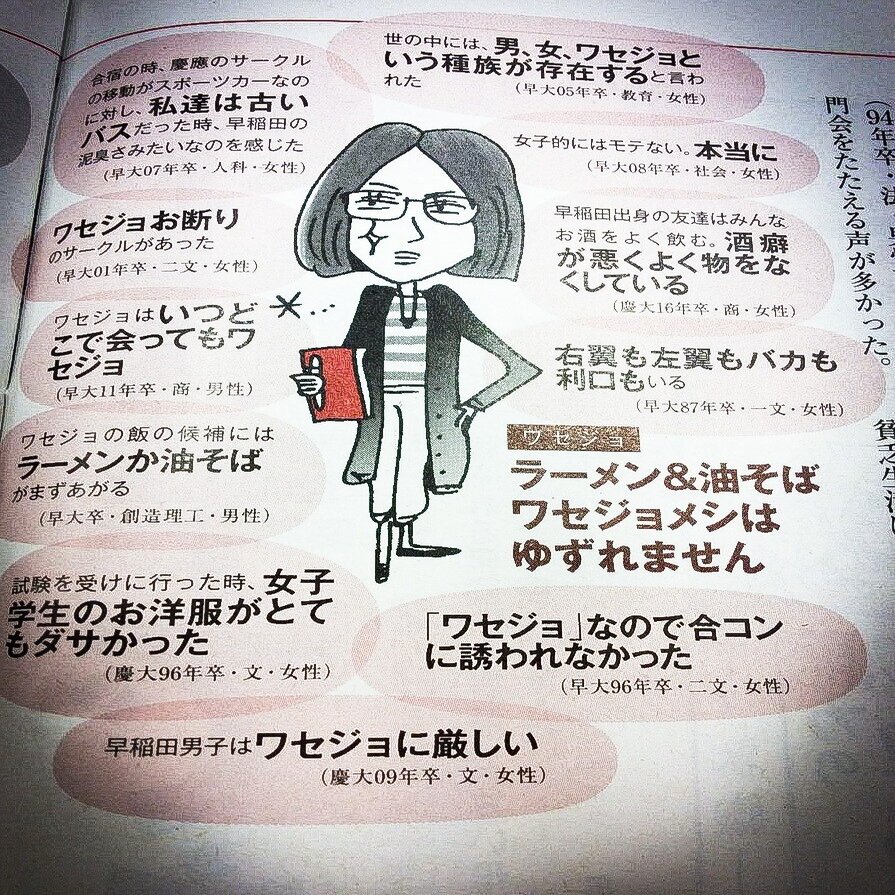 世の中には、男、女、ワセジョと
いう種族が存在すると言わ
れた
(早大05年卒・教育・女性)
合宿の時、慶應のサークル
の移動がスポーツカーなの
に対し、私達は古い
バスだった時、早稲田の
泥臭さみたいなのを感じた
(早大07年卒・人科・女性)
女子的にはモテない。本当に
(早大08年卒・社会・女性)
ワセジョお断り
のサークルがあった
(早大01年卒・二文・女性)
早稲田出身の友達はみんな
お酒をよく飲む。酒癖
が悪くよく物をな
くしている
(慶大16年卒・商・女性)
ワセジョはいつど
こで会ってもワ
セジョ
(早大11年卒・商・男性)
右翼も左翼もバカも
利口もいる
(早大87年卒・一文・女性)
ワセジョの飯の候補には
ラーメンか油そば
がまずあがる
(早大卒・創造理工・男性)
ワセジョ
ラーメン&油そば
ワセジョメシは
ゆずれません
試験を受けに行った時、女子
学生のお洋服がとて
もダサかった
(慶大96年卒・文・女性)
「ワセジョ」なので合コン
に誘われなかった
(早大96年卒・二文・女性)
早稲田男子はワセジョに厳しい
(慶大09年卒・文・女性)
(94年卒・法
門会をたたえる声が多かった。